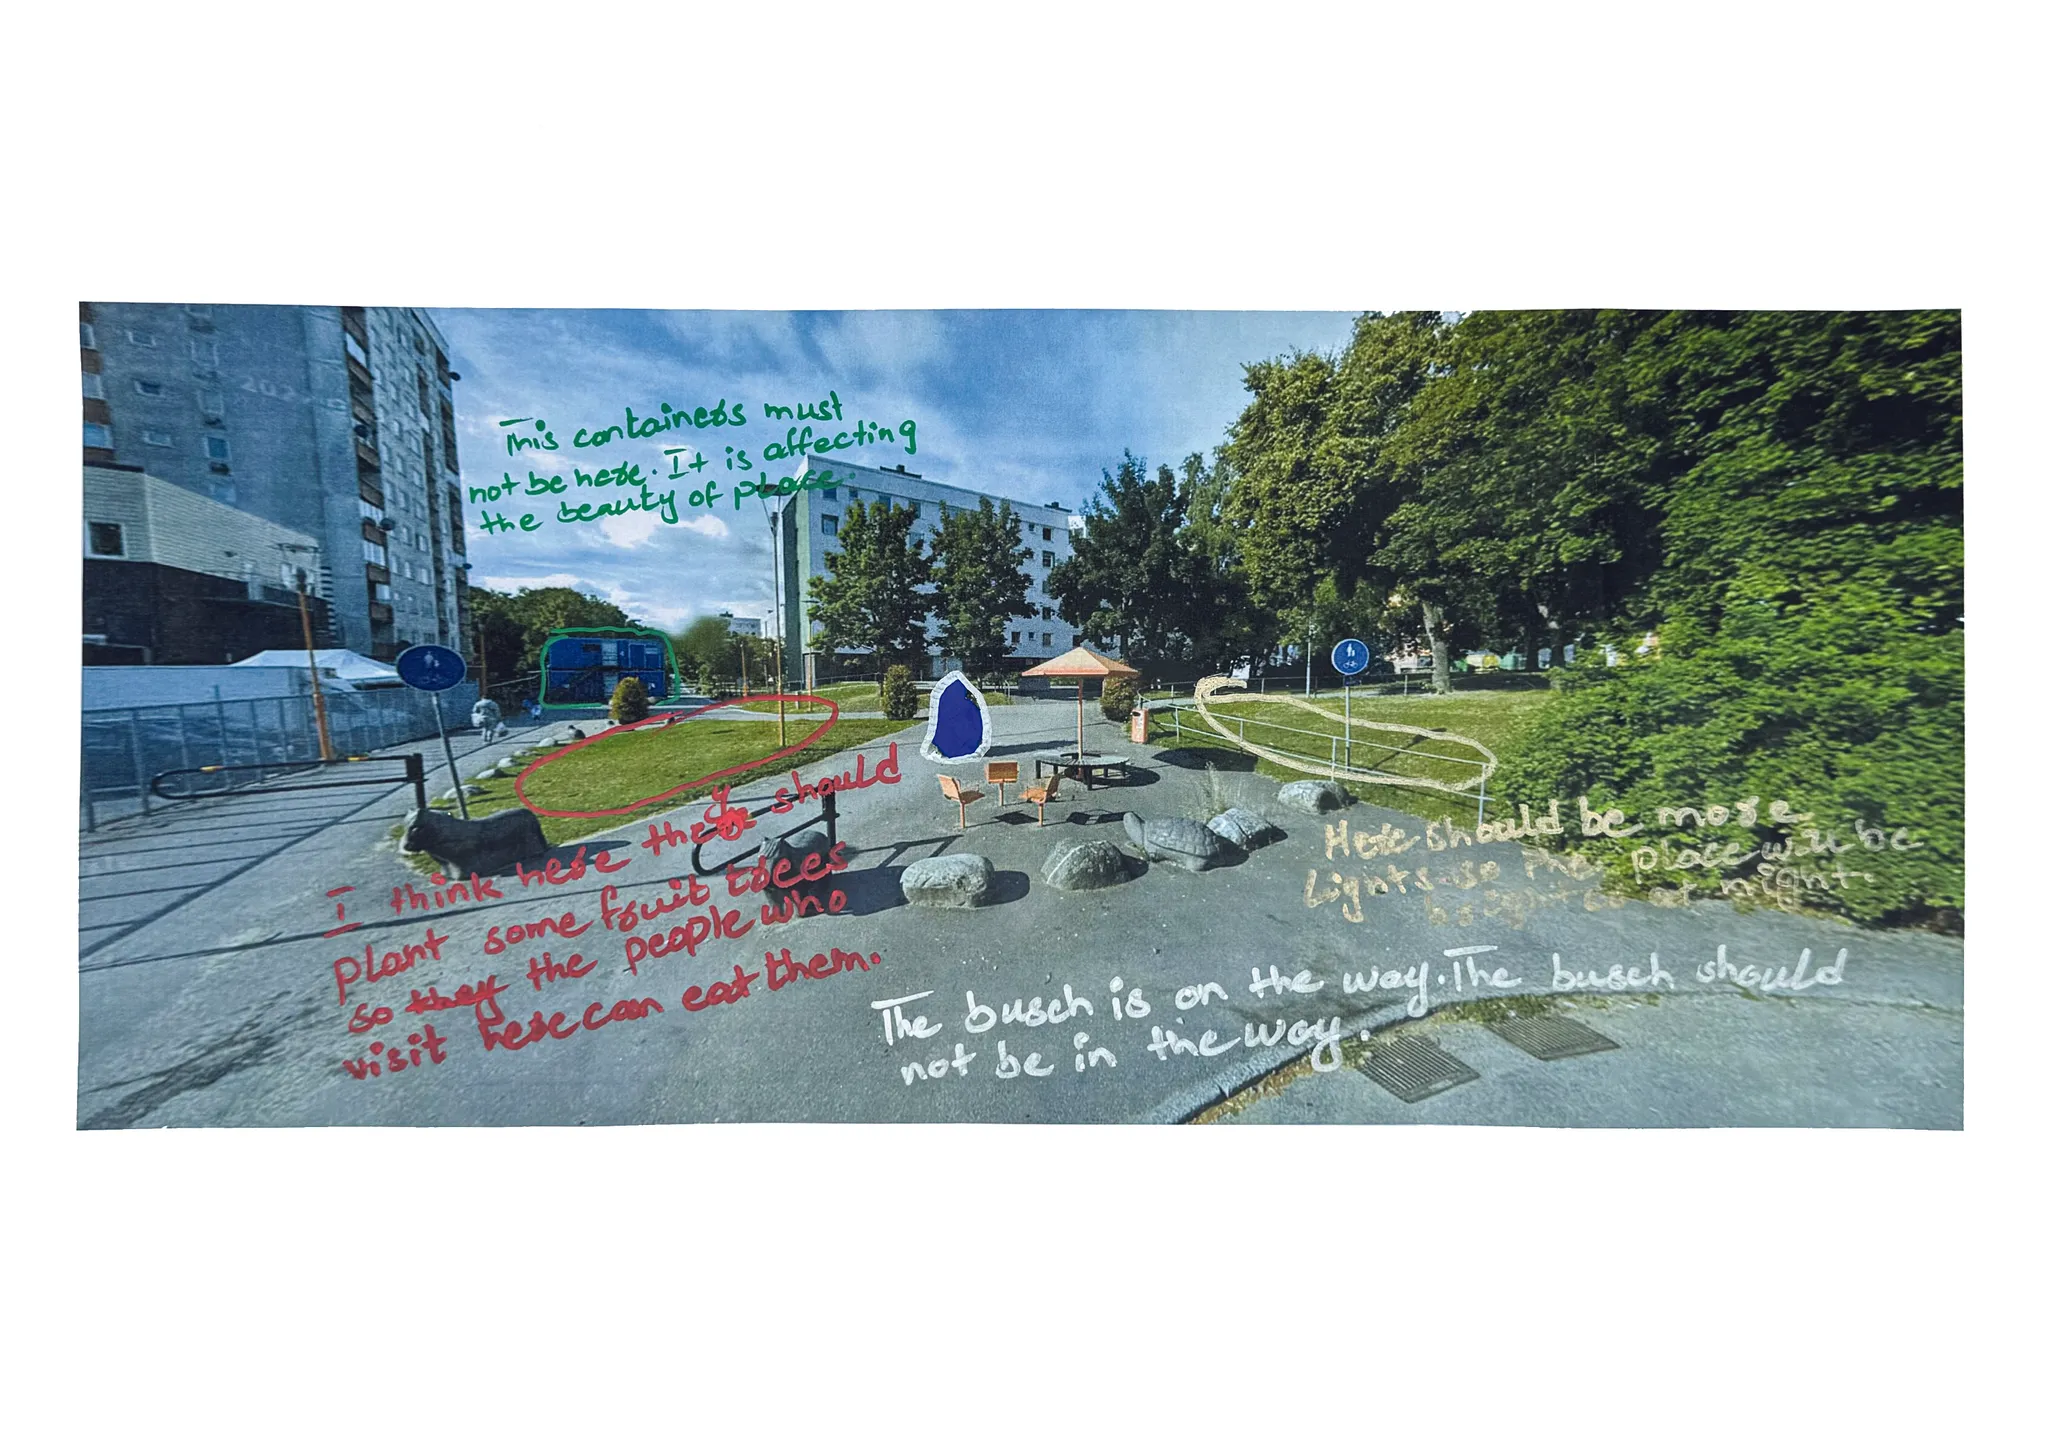 This containers must
not be here. It is affecting
the beauty of place
I think here they should
plant some fruit trees
so they the people who
visit here can eat them.
Here should be more
Lights so the place will be
at night.
The busch is on the way. The busch should
not be in the way.
202